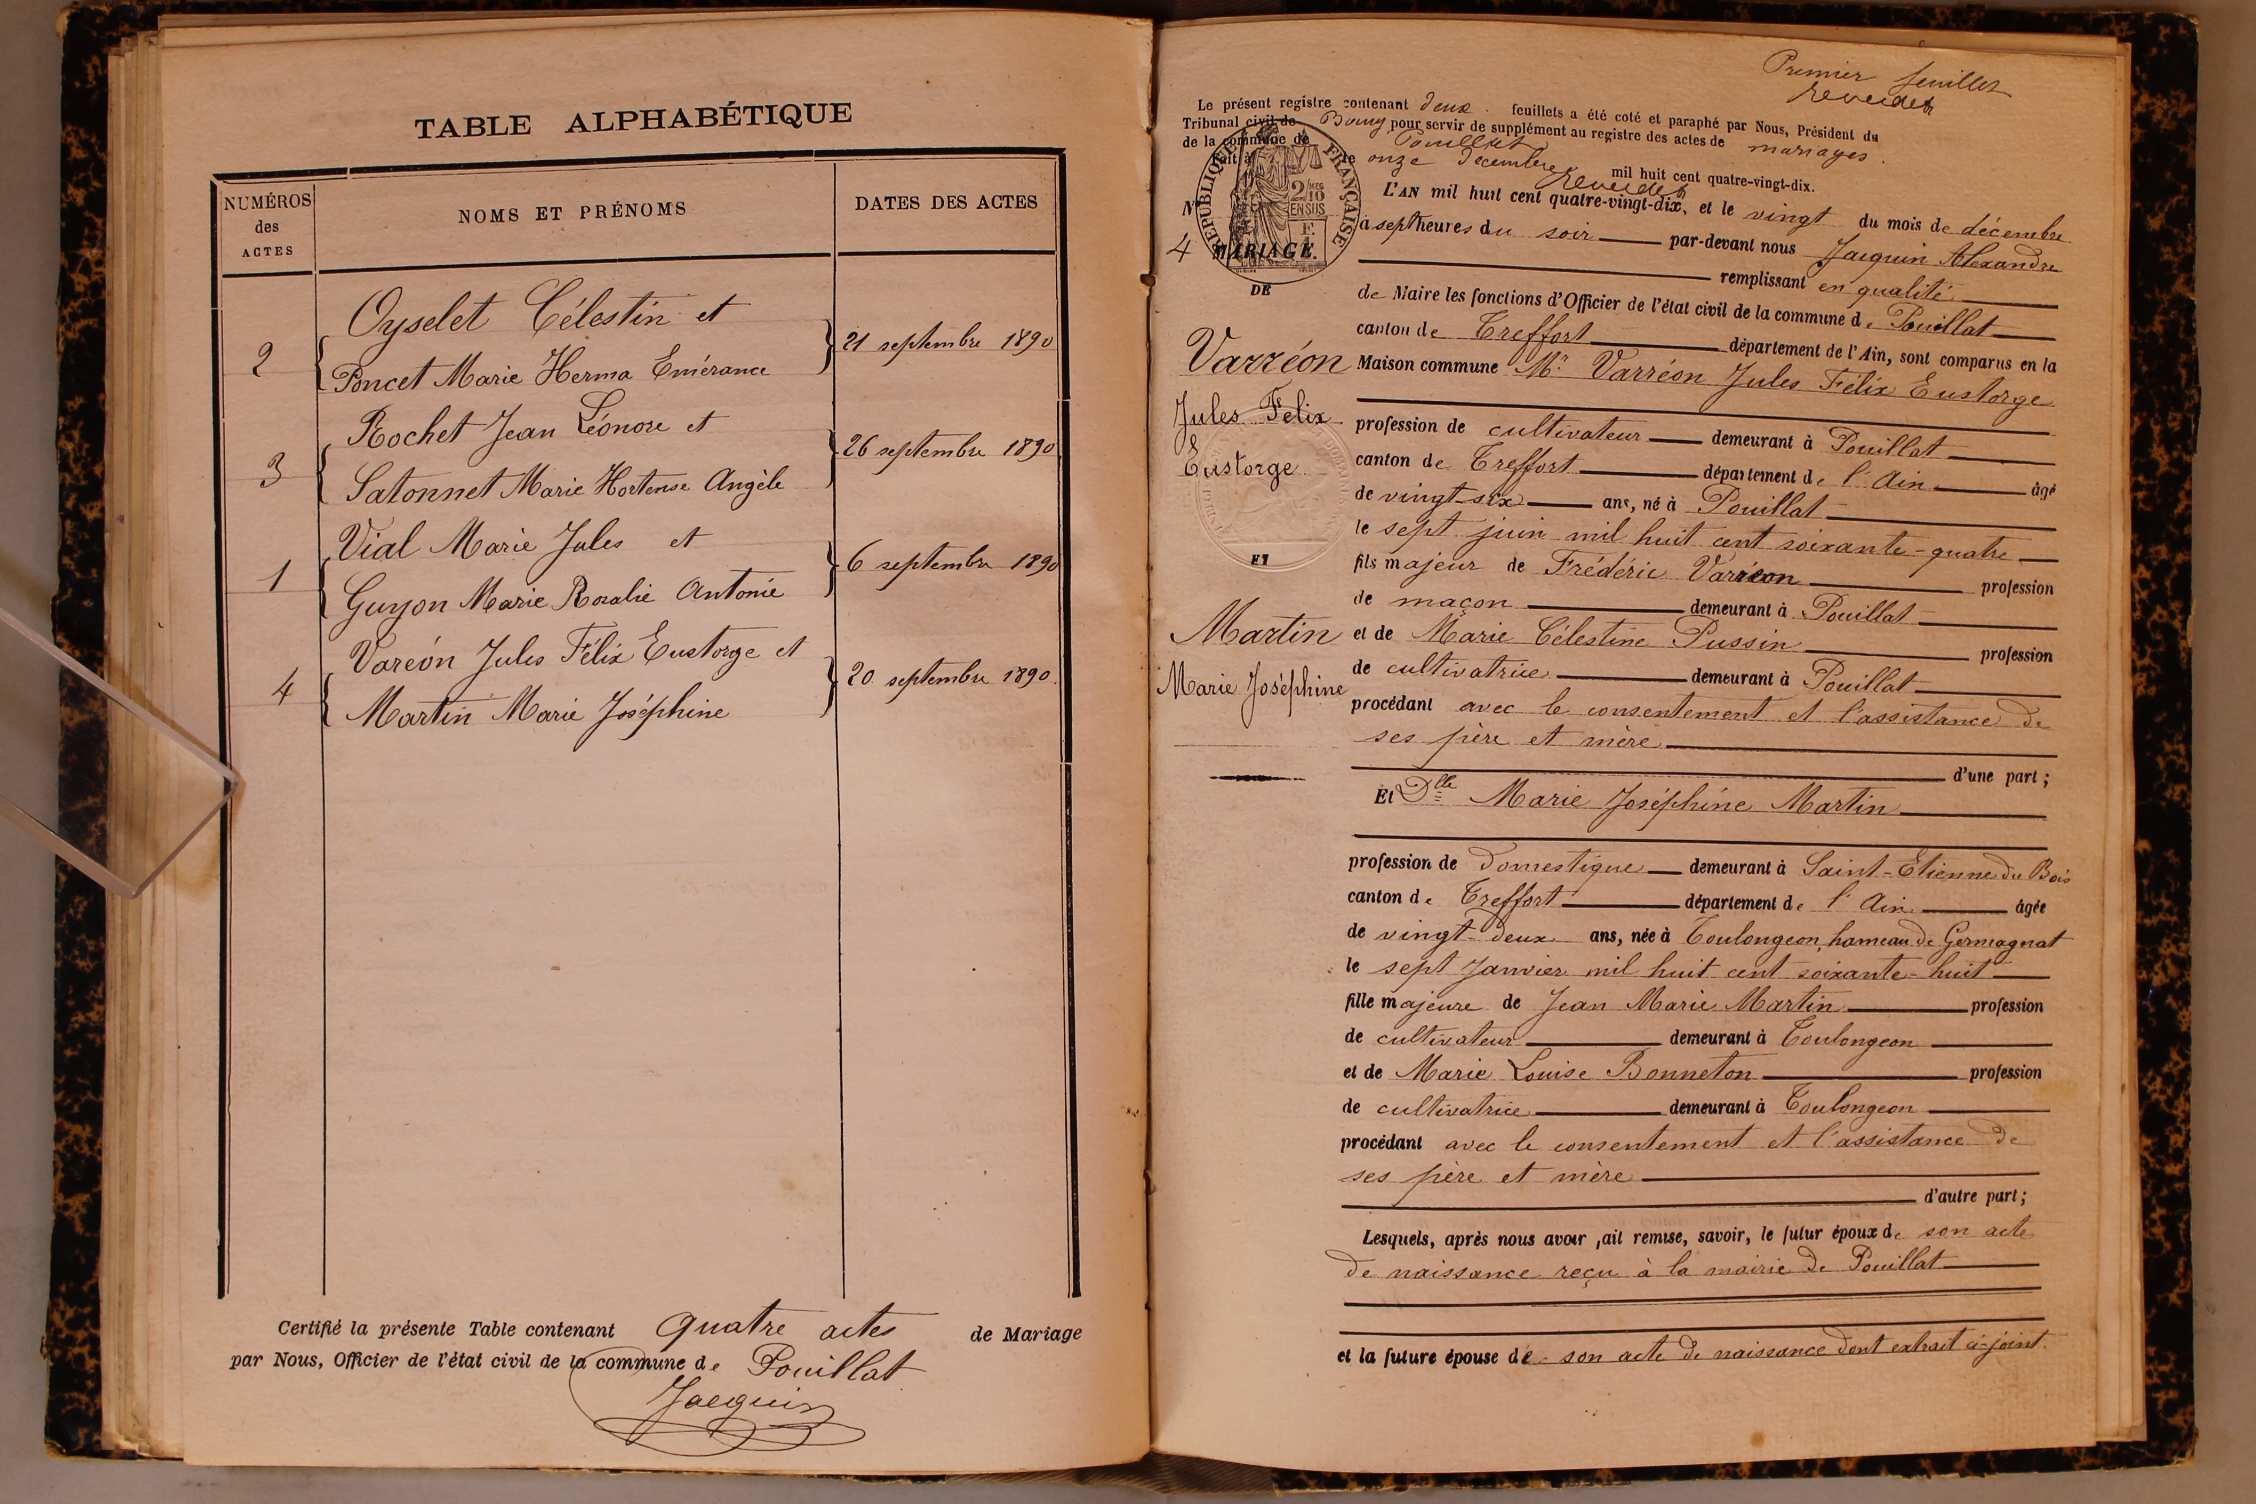 TABLE ALPHABÉTIQUE
NUMÉROS
des
ACTES
NOMS ET PRÉNOMS
DATES DES ACTES
Oyselet Célestin et
2
21 septembre 1890
Poncet Marie Herma Emérance
Rochet Jean Léonore et
3
26 septembre 1890
Satonnet Marie Hortense Angèle
Vial Marie Jules et
1
6 septembre 1890
Guyon Marie Rosalie Antonie
Varéon Jules Félix Eustorge et
4
20 septembre 1890
Martin Marie Joséphine
Certifié la présente Table contenant quatre actes de Mariage
par Nous, Officier de l'état civil de la commune de Pouillat
Jacquin
Premier feuillet
Le présent registre contenant deux feuillets a été coté et paraphé par Nous, Président du
Tribunal civil de Bourg pour servir de supplément au registre des actes de mariages.
de la commune de Pouillat
fait à le onze décembre mil huit cent quatre-vingt-dix.
RÉPUBLIQUE FRANÇAISE
2/10
EN SUS
N°
4
MARIAGE.
DE
Varréon
Jules Felix
Eustorge
ET
Martin
Marie Joséphine
L'AN mil huit cent quatre-vingt-dix, et le vingt du mois de décembre
à sept heures du soir par-devant nous Jacquin Alexandre
remplissant en qualité
de Maire les fonctions d'Officier de l'état civil de la commune de Pouillat
canton de Treffort département de l'Ain, sont comparus en la
Maison commune Mr Varréon Jules Félix Eustorge
profession de cultivateur demeurant à Pouillat
canton de Treffort département de l'Ain âgé
de vingt-six ans, né à Pouillat
le sept juin mil huit cent soixante-quatre
fils majeur de Frédéric Varréon profession
de maçon demeurant à Pouillat
et de Marie Célestine Pussin profession
de cultivatrice demeurant à Pouillat
procédant avec le consentement et l'assistance de
ses père et mère
d'une part;
Et Dlle Marie Joséphine Martin
profession de domestique demeurant à Saint-Etienne du Bois
canton de Treffort département de l'Ain âgée
de vingt-deux ans, née à Toulongeon, hameau de Germagnat
le sept Janvier mil huit cent soixante-huit
fille majeure de Jean Marie Martin profession
de cultivateur demeurant à Toulongeon
et de Marie Louise Bonneton profession
de cultivatrice demeurant à Toulongeon
procédant avec le consentement et l'assistance de
ses père et mère
d'autre part;
Lesquels, après nous avoir fait remise, savoir, le futur époux de son acte
de naissance reçu à la mairie de Pouillat
et la future épouse de son acte de naissance dont extrait ci-joint.